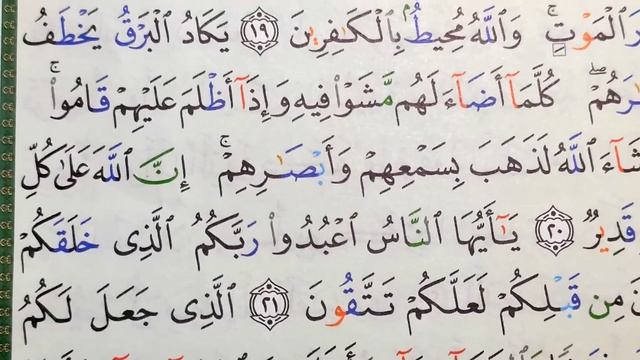 ٱلْمَوْتِ ۚ وَٱللَّهُ مُحِيطٌۢ بِٱلْكَـٰفِرِينَ ١٩ يَكَادُ ٱلْبَرْقُ يَخْطَفُ
كُلَّمَآ أَضَآءَ لَهُم مَّشَوْا۟ فِيهِ وَإِذَآ أَظْلَمَ عَلَيْهِمْ قَامُوا۟ ۚ
ٱللَّهُ لَذَهَبَ بِسَمْعِهِمْ وَأَبْصَـٰرِهِمْ ۚ إِنَّ ٱللَّهَ عَلَىٰ كُلِّ
قَدِيرٌ ٢٠ يَـٰٓأَيُّهَا ٱلنَّاسُ ٱعْبُدُوا۟ رَبَّكُمُ ٱلَّذِى خَلَقَكُمْ
مِن قَبْلِكُمْ لَعَلَّكُمْ تَتَّقُونَ ٢١ ٱلَّذِى جَعَلَ لَكُمُ